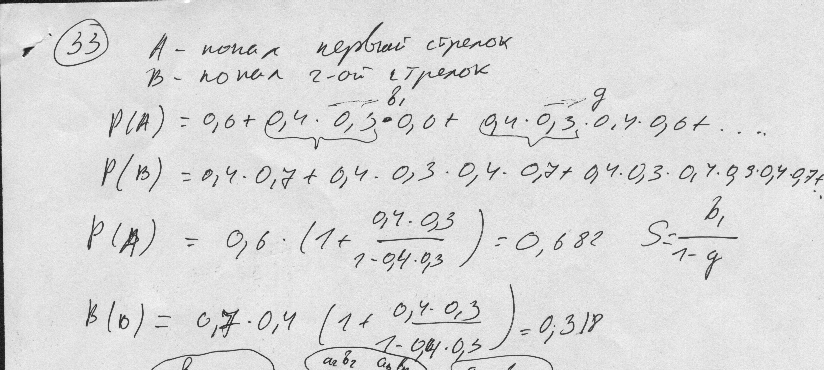 33
A - попал первый стрелок
B - попал 2-ой стрелок
b₁ g
P(A) = 0,6 + 0,4 · 0,3 · 0,6 + 0,4 · 0,3 · 0,4 · 0,6 + ....
P(B) = 0,4 · 0,7 + 0,4 · 0,3 · 0,4 · 0,7 + 0,4 · 0,3 · 0,4 · 0,3 · 0,4 · 0,7 +
P(A) = 0,6 · (1 + 0,4 · 0,3 / 1 - 0,4 · 0,3) = 0,682 S = b₁ / 1 - g
B(B) = 0,7 · 0,4 (1 + 0,4 · 0,3 / 1 - 0,4 · 0,3) = 0,318